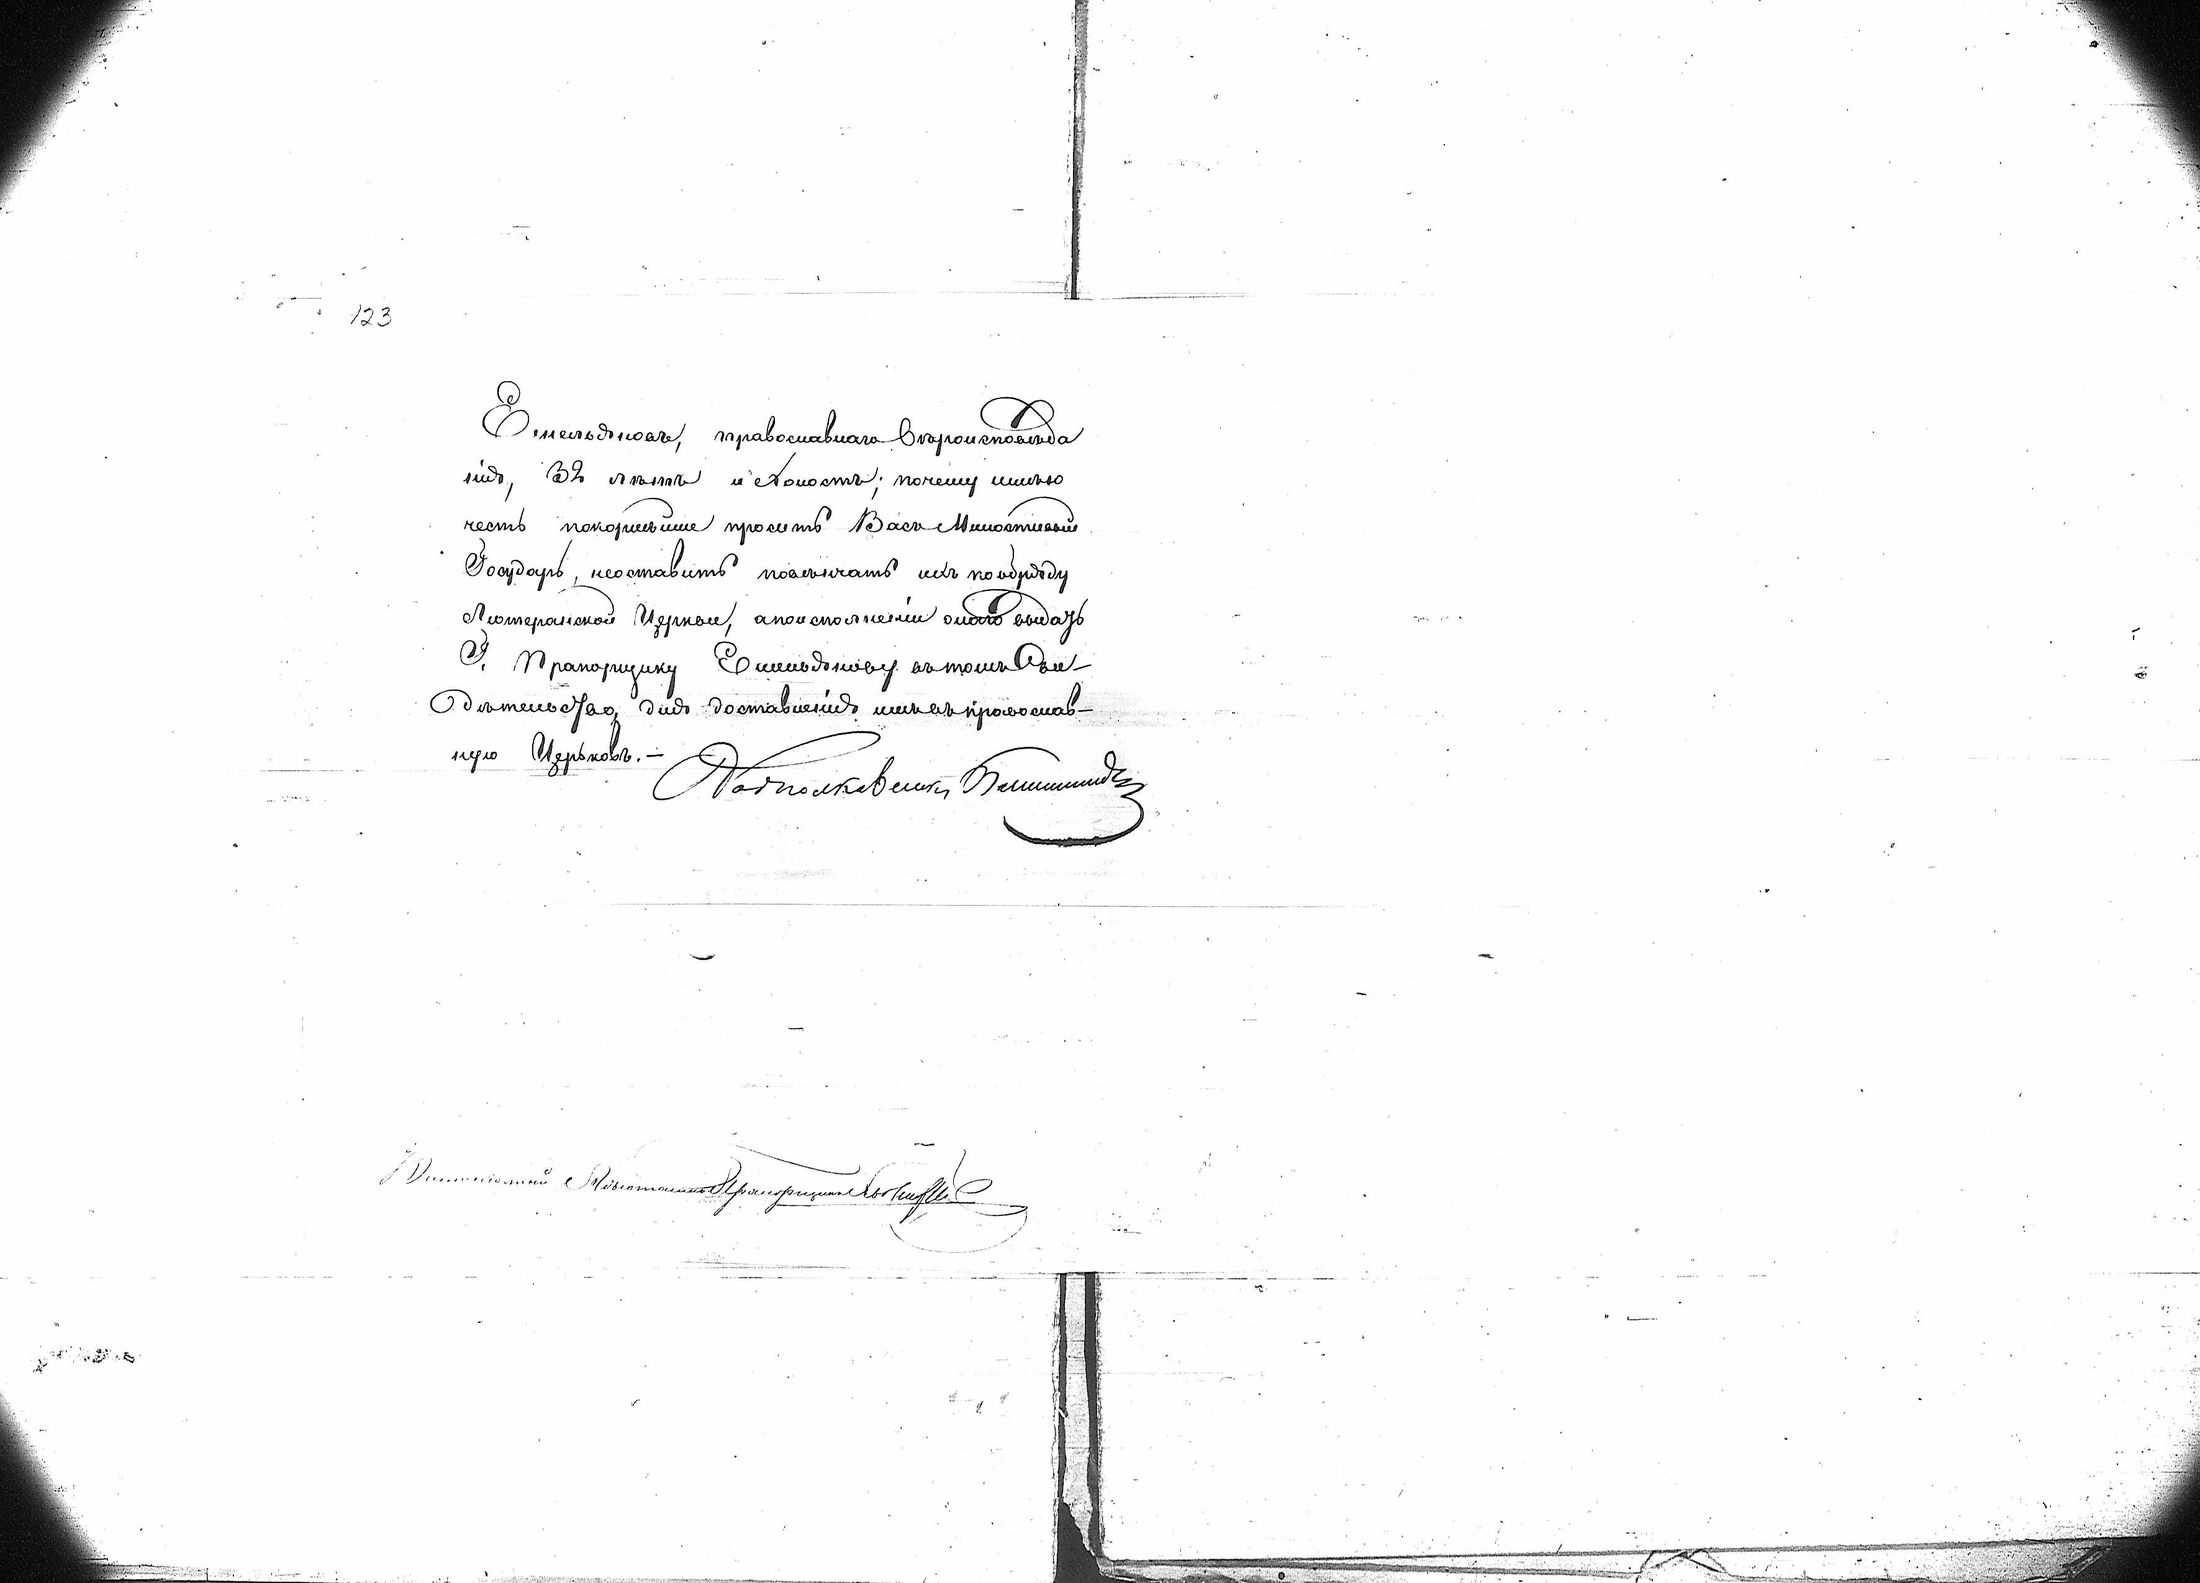 123
Емельяновъ, православнаго Вѣроисповѣда
нія, 32 лѣтъ и Холостъ; почему имѣю
честь покорнѣйше просить Васъ Милостивый
Государь, неоставить повѣнчать ихъ пообряду
Лютеранской Церкви, апоисполненіи онаго выдать
Г. Прапорщику Емельянову въ томъ Сви-
дѣтельство, для доставленія имъ въ православ-
ную Церьковь. —
Подполковникъ
Прапорщикъ